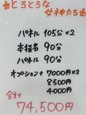 とろとろな
女神たち
パネル 105分×2
本指名 90分
パネル 90分
オプション 7000円×2
8500円
4000円
合計
74,500円